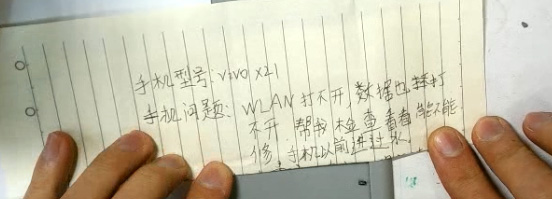 手机型号:vivo x21
手机问题:WLAN打不开,数据也打
不开,帮我检查看看能不能
修,手机以前进过水